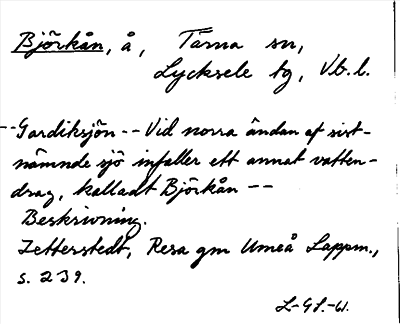 Björkån, å, Tärna sn,
Lycksele tg, Vb. l.
-- Gardiksjön -- Vid norra ändan af sist-
nämnde sjö infaller ett annat vatten-
drag, kalladt Björkån --
Beskrivning.
Zetterstedt, Resa gm Umeå Lappm.,
s. 239.